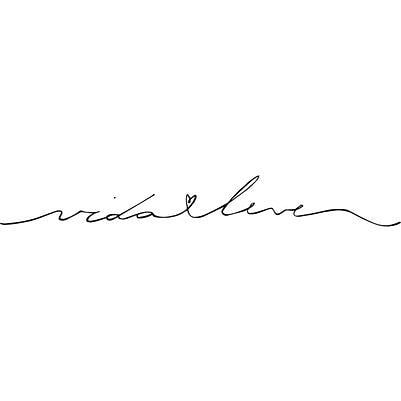 vida leve